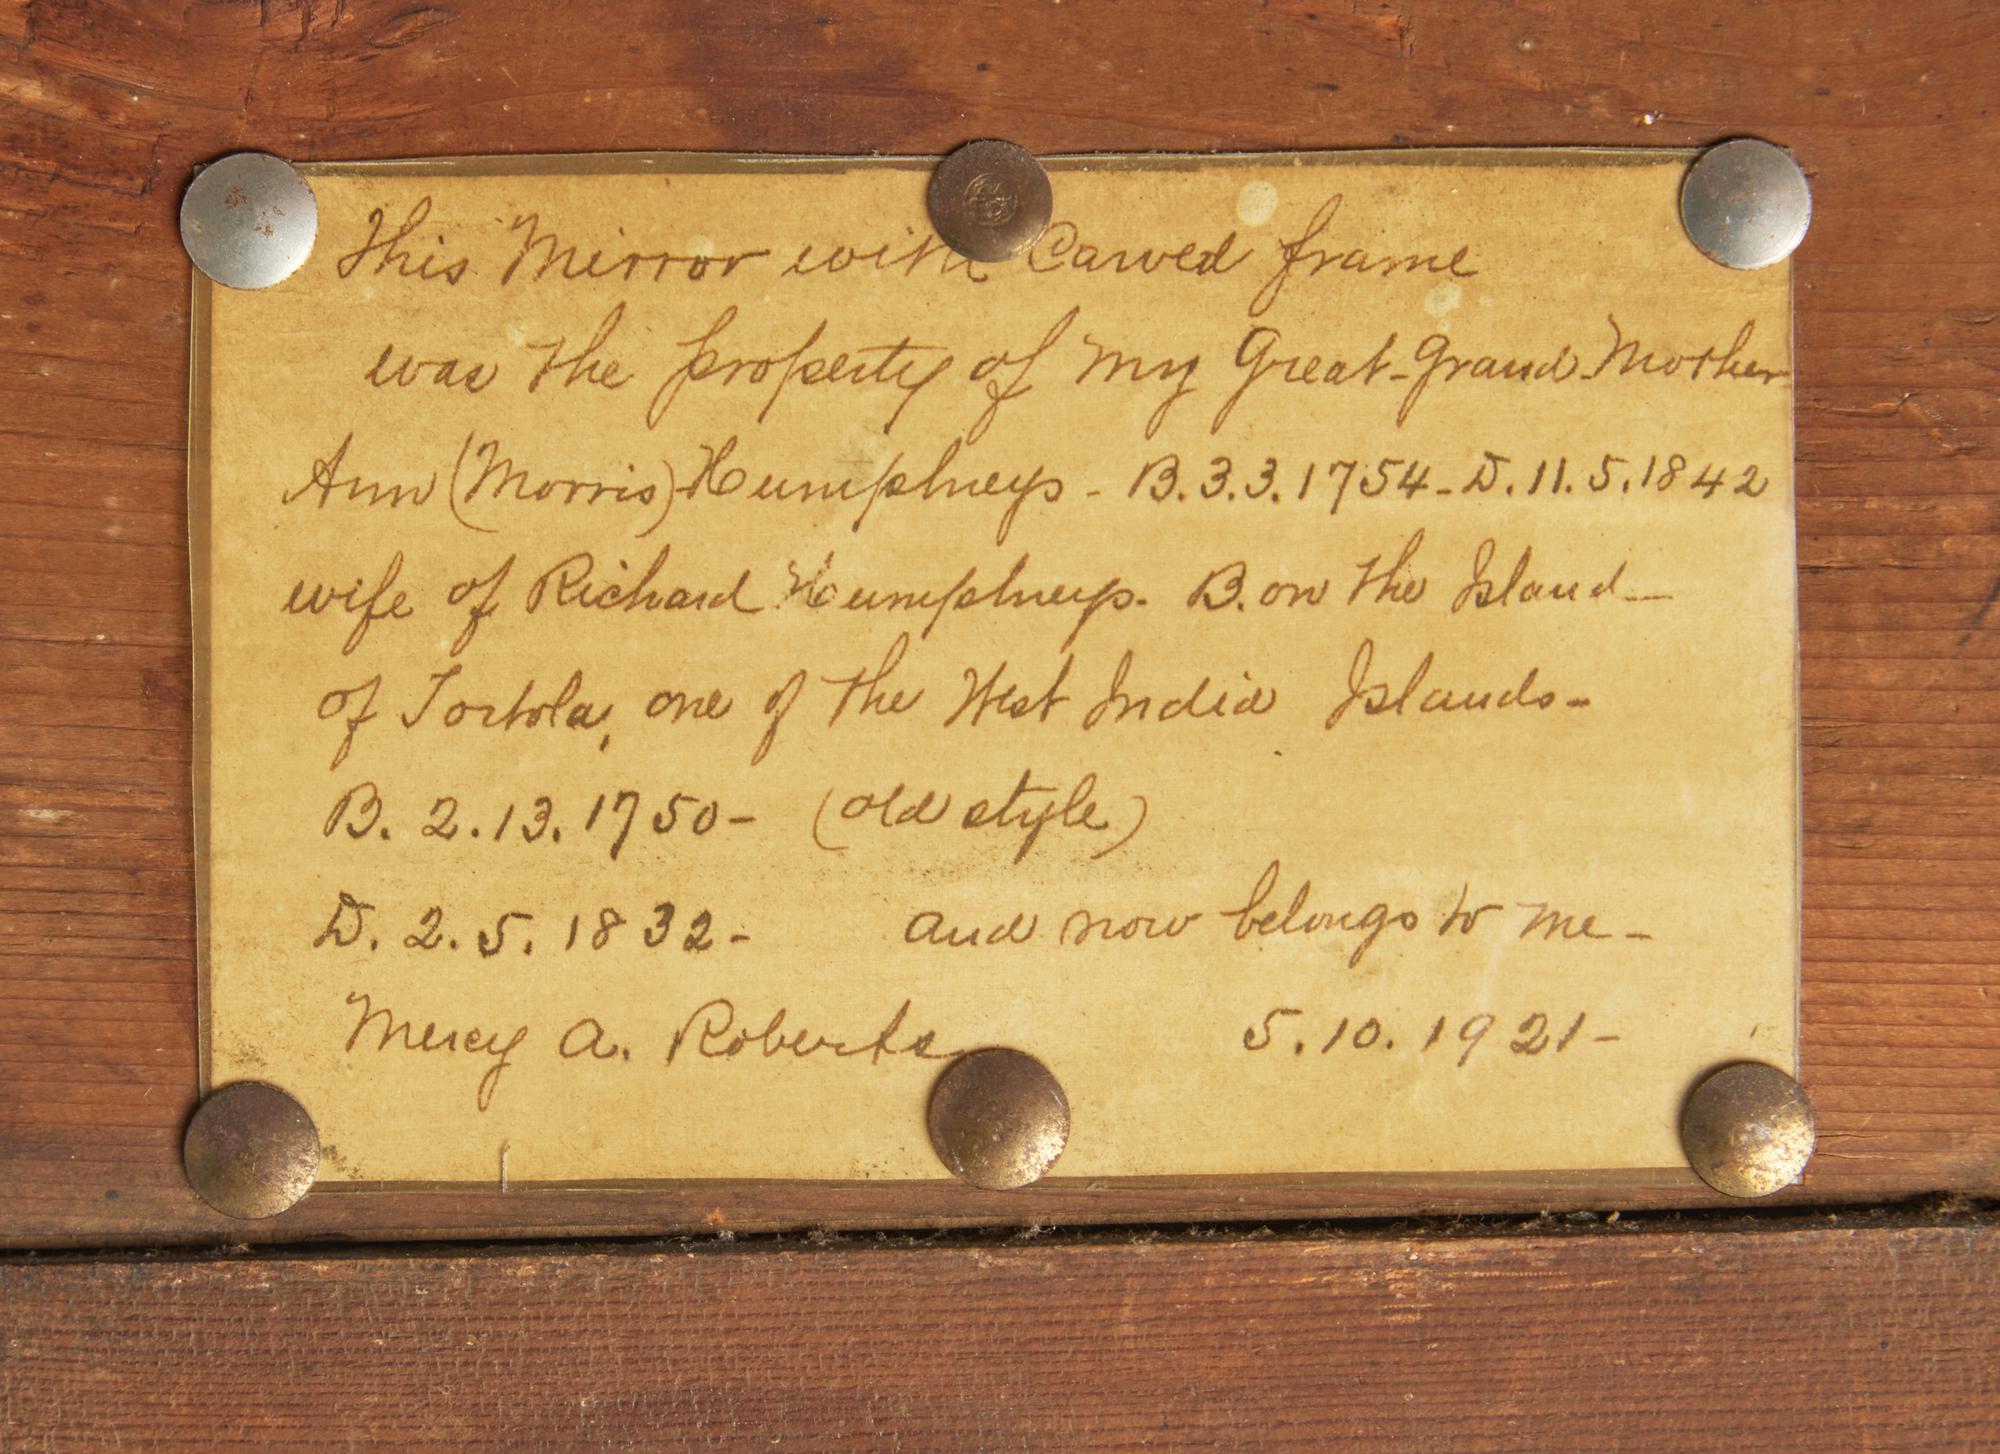 This Mirror with Carved frame
was the property of my Great-Grand-Mother
Ann (Morris) Humphreys - B.3.3.1754 - D.11.5.1842
wife of Richard Humphreys - B. on the Island -
of Tortola, one of the West India Islands -
B. 2.13.1750 - (old style)
D. 2.5.1832 - and now belongs to me -
Mercy A. Roberts 5.10.1921 -